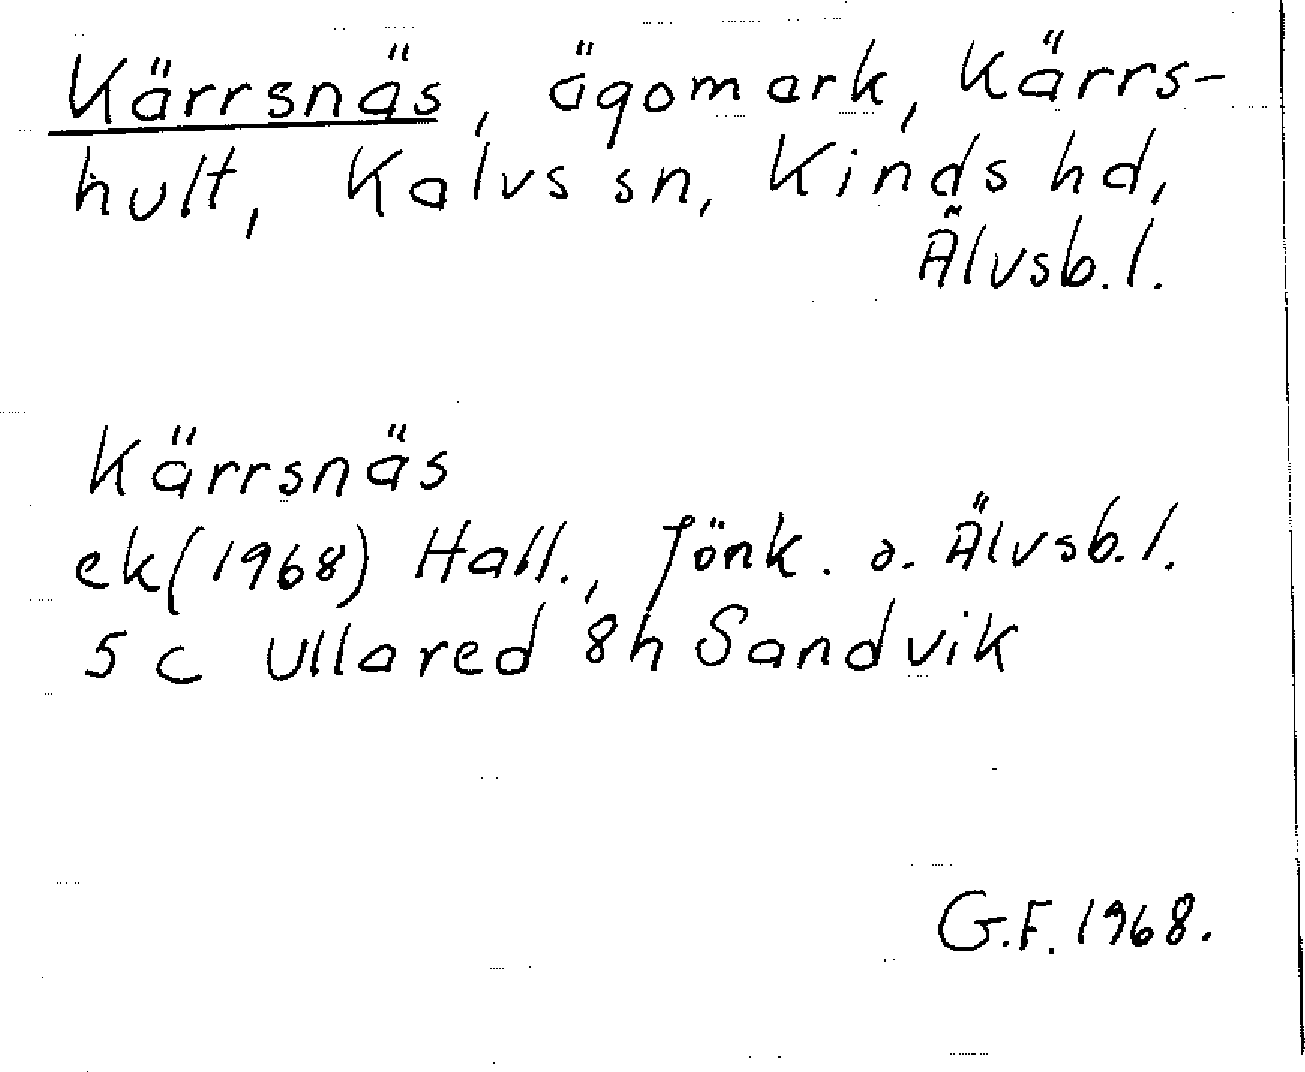 Kärrsnäs, ägomark, Kärrs-
hult, Kalvs sn, Kinds hd,
Älvsb.l.
Kärrsnäs
ek(1968) Hall., Jönk. o. Älvsb.l.
5 c Ullared 8h Sandvik
G.F. 1968.